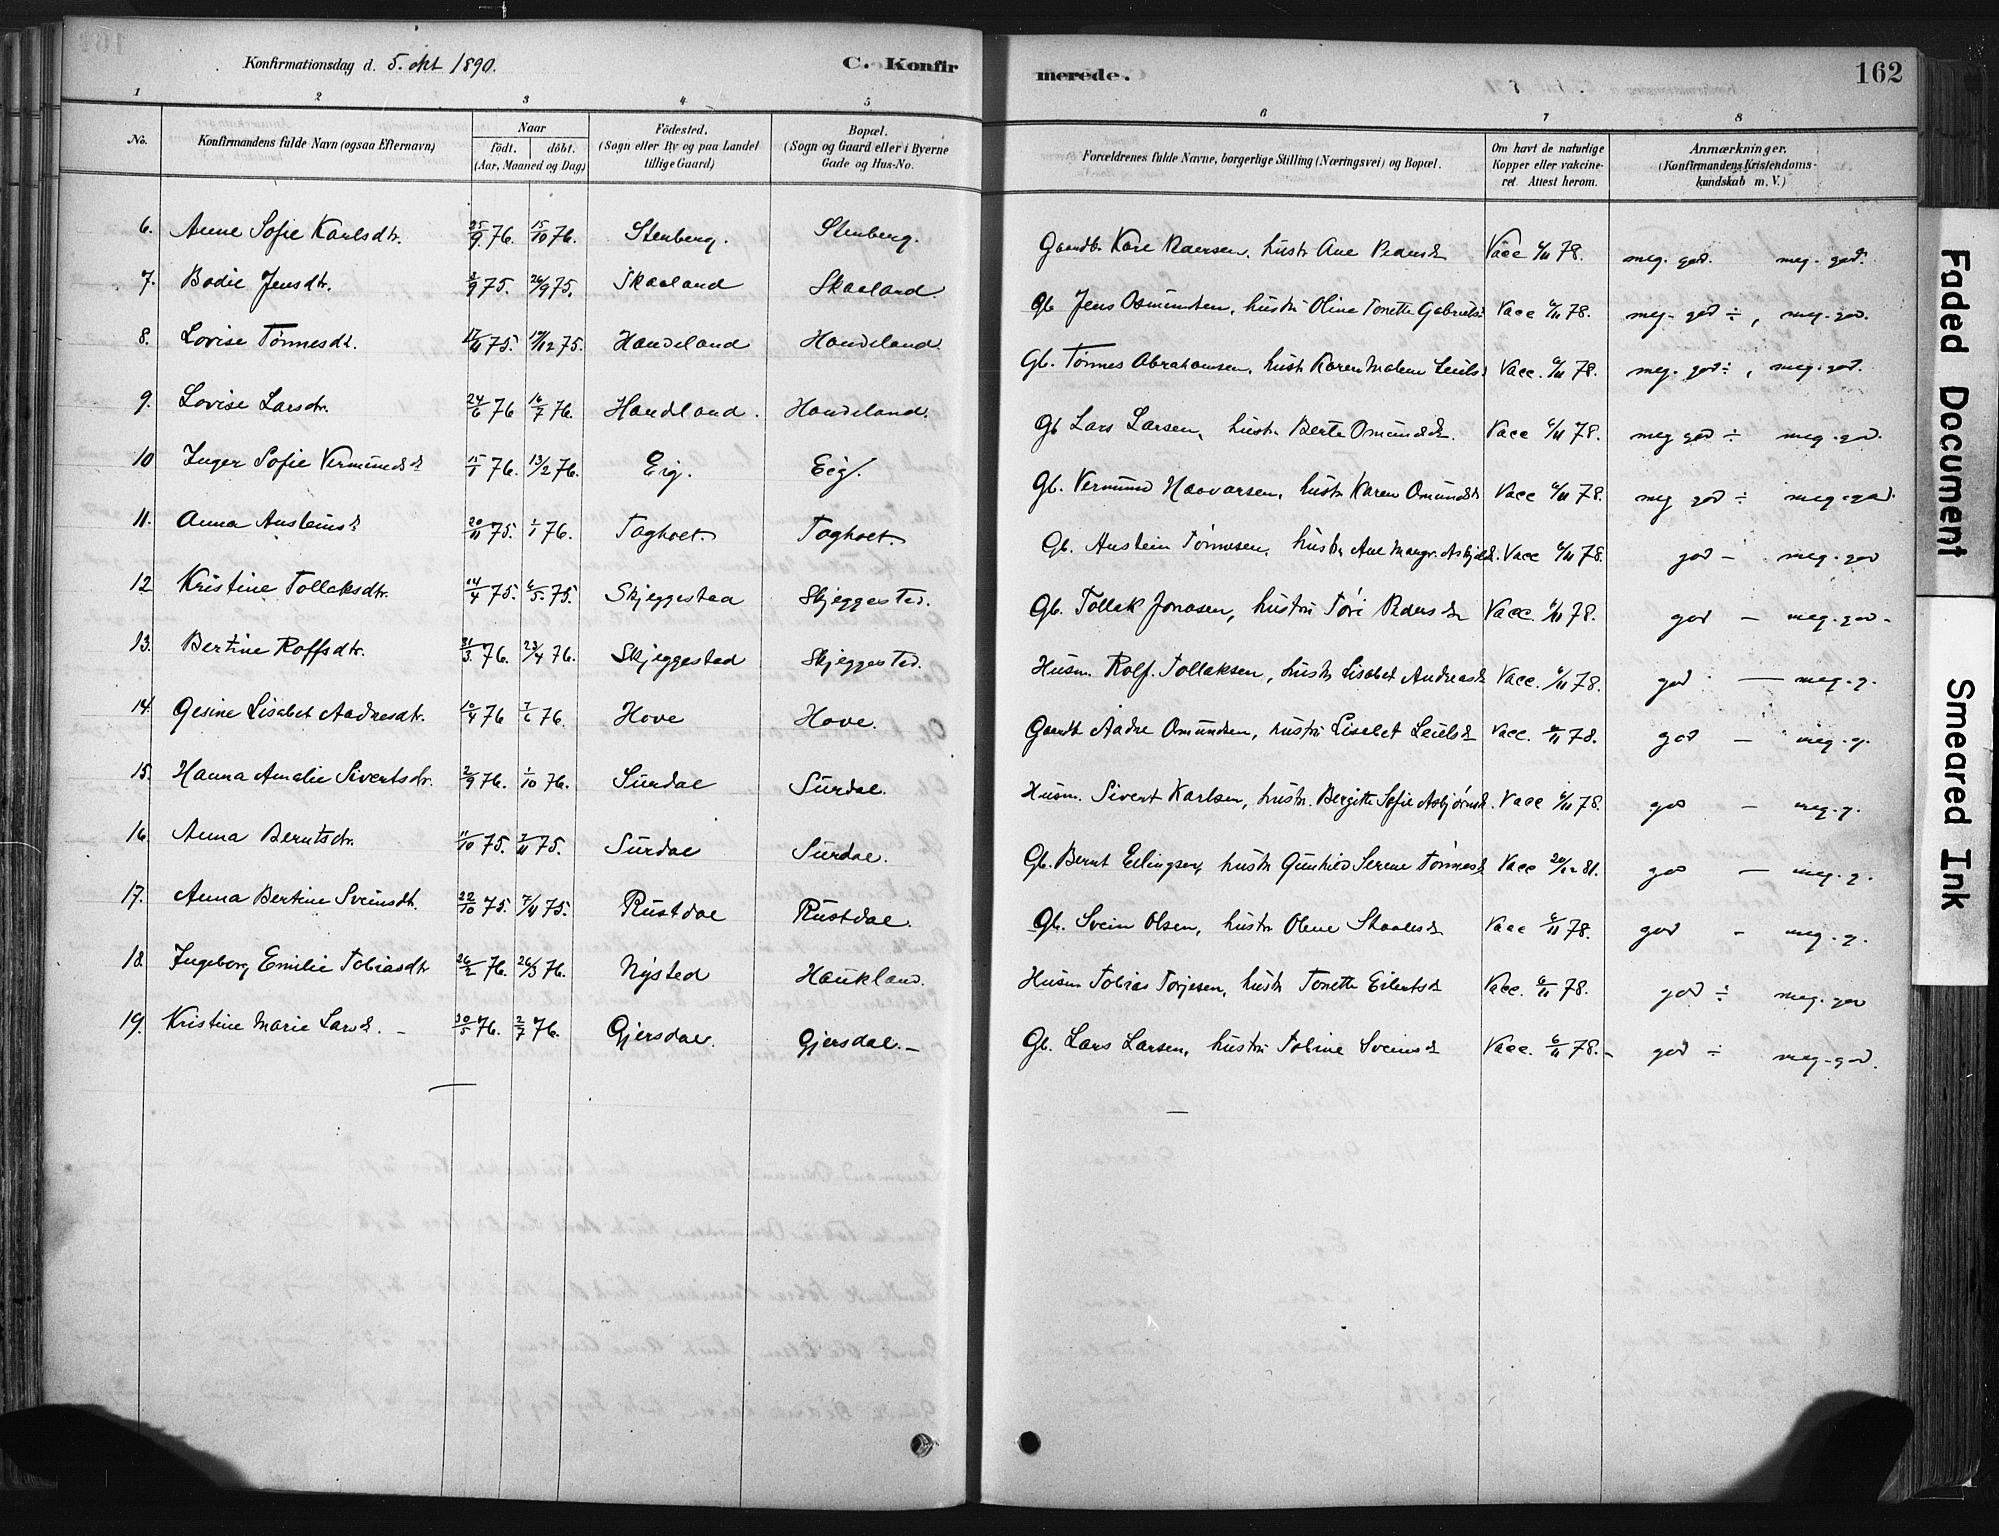 Konfirmationsdag d. 5. okt 1890.
C. Konfirmerede.
162
1 2 3 4 5 6 7 8
No.
Konfirmandens fulde Navn (ogsaa Efternavn)
Naar
födt. döbt.
(Aar, Maaned og Dag)
Födested.
(Sogn eller By og paa Landet
tillige Gaard)
Bopæl.
(Sogn og Gaard eller i Byerne
Gade og Hus-No.
Forældrenes fulde Navne, borgerlige Stilling (Næringsvei) og Bopæl.
Om havt de naturlige
Kopper eller vakcine-
ret. Attest herom.
Anmærkninger.
(Konfirmandens Kristendoms-
kundskab m. V.)
6. Anne Sofie Karlsdtr. 25/9 76. 15/10 76. Stenberg. Stenberg. Vacc 6/11 78. meg. god. meg. god.
7. Bodil Jensdtr. 9 75. 26/9 75. Skaaland Skaaland. Gb Jens Osmundsen, hustr Oline Tonette Gabriels Vacc 6/11 78. meg. god ÷, meg. god.
8. Lovise Tønnesdt. 17/11 75. 19/12 75. Handeland Handeland. Gb. Tønnes Abrahamsen, hustr Karen Malene Vacc. 6/11 78. meg. god ÷, meg. god.
9. Lovise Larsdtr. 24/6 76 16/7 76. Handeland. Handeland. Gb Lars Larsen, hustr. Berte Omundsd. Vacc 6/11 78. meg god ÷ meg. god.
10 Inger Sofie Vermundsd 15/1 76. 13/2 76. Eig. Eig. Gb. Vermund Haavarsen, hustr Karen Omundsd Vacc 6/11 78. meg god ÷ meg. god.
11. Anna Austeinsd 20/11 75. 1/1 76. Toghoet. Toghoet. Gb. Austein Tønnesen, hustr. Ane Vacc 6/11 78. god — meg. god
12 Kristine Tollaksdtr. 14/4 75. 6/5. 75. Skjeggestad Skjeggestad. Gb. Tollak Jonasen, hustr Tori Pedersd Vacc. 6/11 78. god — meg. god.
13. Bertine Rolfsdtr. 31/3. 76. 23/4 76. Skjeggestad Skjeggestad. Husm. Rolf Tollaksen, hustr Lisabet Andreasd Vacc. 6/11 78. god — meg. g.
14. Gesine Lisabet Aadnesdtr. 10/4 76 7/6 76. Hove Hove. Gaardb Aadne Omundsen, hustr Lisabet Vacc. 6/11 78. god — meg. g.
15. Hanna Amalie Sivertsdtr. 2/9 76. 1/10 76. Surdal Surdal. Husm. Sivert Karlsen, hustr. Bergitte Sofie Asbjørnsd. Vacc 6/11 78. god — meg. g.
16. Anna Berntsdtr. 11/10 75. 7/11 75. Surdal Surdal. Gb. Bernt Ellingsen, hustr Gunhild Serine Tønnesd Vacc 20/12 81. god — meg. g.
17. Anna Bertine Sveinsdt. 22/10 75. 7/11 75. Rustdal Rustdal. Gb. Svein Olsen, hustr Olene Staalesd Vacc 6/11 78. god — meg. g.
18. Ingeborg Emilie Tobiasdtr 26/2 76. 26/3 76. Nysted Haukland. Husm Tobias Torjesen, hustr Tonette Eilertsd Vacc. 6/11 78. god ÷ meg. god
19. Kristine Marie Larsd. — 30/5 76. 2/7 76. Gjersdal. Gjersdal.— Gb. Lars Larsen, hustr Tobine Sveinsd Vacc. 6/11 78.— god ÷ meg. god.
Faded Document
Smeared Ink